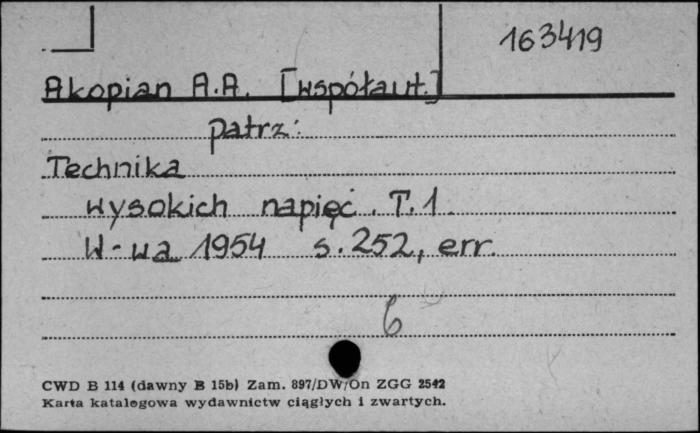 163419
Akopian A.A. [współaut.]
patrz:
Technika
wysokich napięć. T.1.
W-wa 1954 s.252, err.
6
CWD B 114 (dawny B 15b) Zam. 897/DW/On ZGG 2542
Karta katalogowa wydawnictw ciągłych i zwartych.